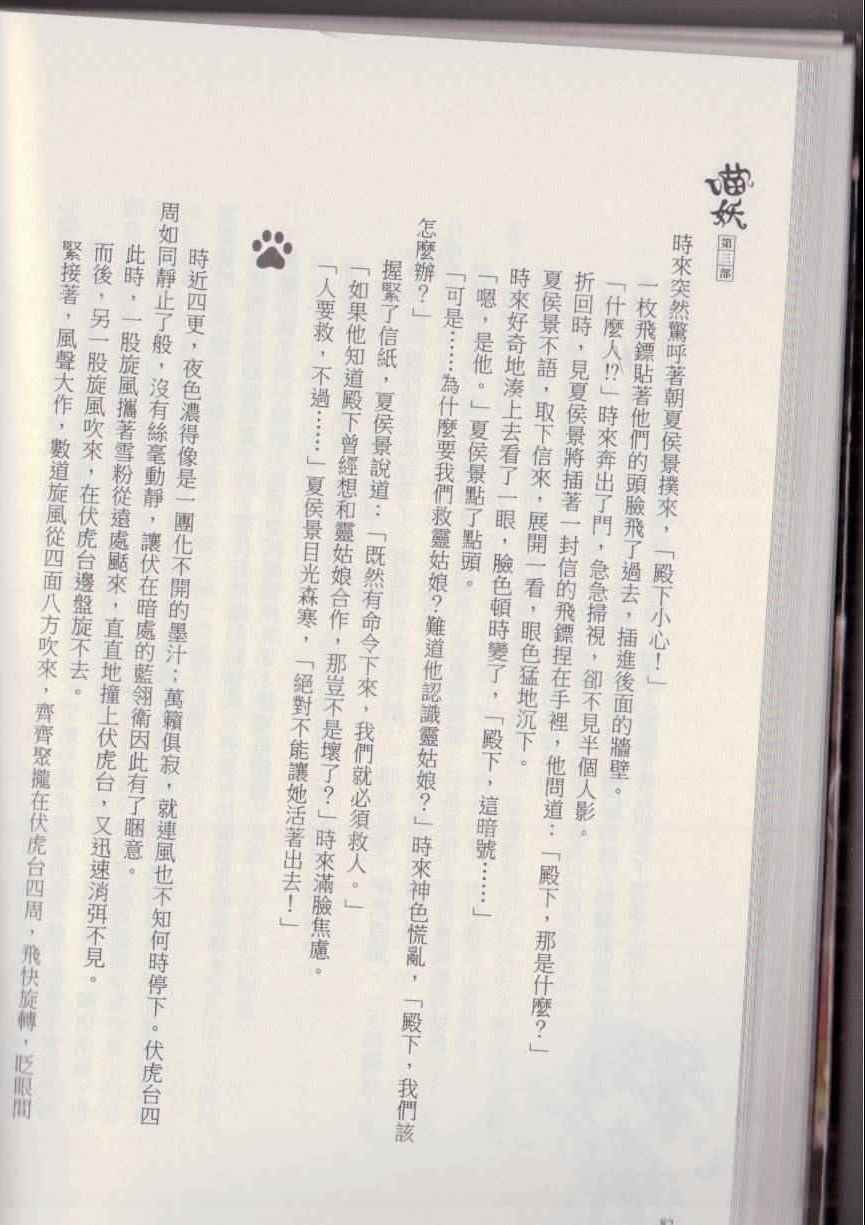 喵妖
第三部
時來突然驚呼著朝夏侯景撲來，「殿下小心！」
一枚飛鏢貼著他們的頭臉飛了過去，插進後面的牆壁。
「什麼人!?」時來奔出了門，急急掃視，卻不見半個人影。
折回時，見夏侯景將插著一封信的飛鏢捏在手裡，他問道：「殿下，那是什麼？」
夏侯景不語，取下信來，展開一看，眼色猛地沉下。
時來好奇地湊上去看了一眼，臉色頓時變了，「殿下，這暗號……」
「嗯，是他。」夏侯景點了點頭。
「可是……為什麼要我們救靈姑娘？難道他認識靈姑娘？」時來神色慌亂，「殿下，我們該
怎麼辦？」
握緊了信紙，夏侯景說道：「既然有命令下來，我們就必須救人。」
「如果他知道殿下曾經想和靈姑娘合作，那豈不是壞了？」時來滿臉焦慮。
「人要救，不過……」夏侯景目光森寒，「絕對不能讓她活著出去！」
時近四更，夜色濃得像是一團化不開的墨汁；萬籟俱寂，就連風也不知何時停下。伏虎台四
周如同靜止了般，沒有絲毫動靜，讓伏在暗處的藍翎衛因此有了睏意。
此時，一股旋風攜著雪粉從遠處颳來，直直地撞上伏虎台，又迅速消弭不見。
而後，另一股旋風吹來，在伏虎台邊盤旋不去。
緊接著，風聲大作，數道旋風從四面八方吹來，齊齊聚攏在伏虎台四周，飛快旋轉，眨眼間